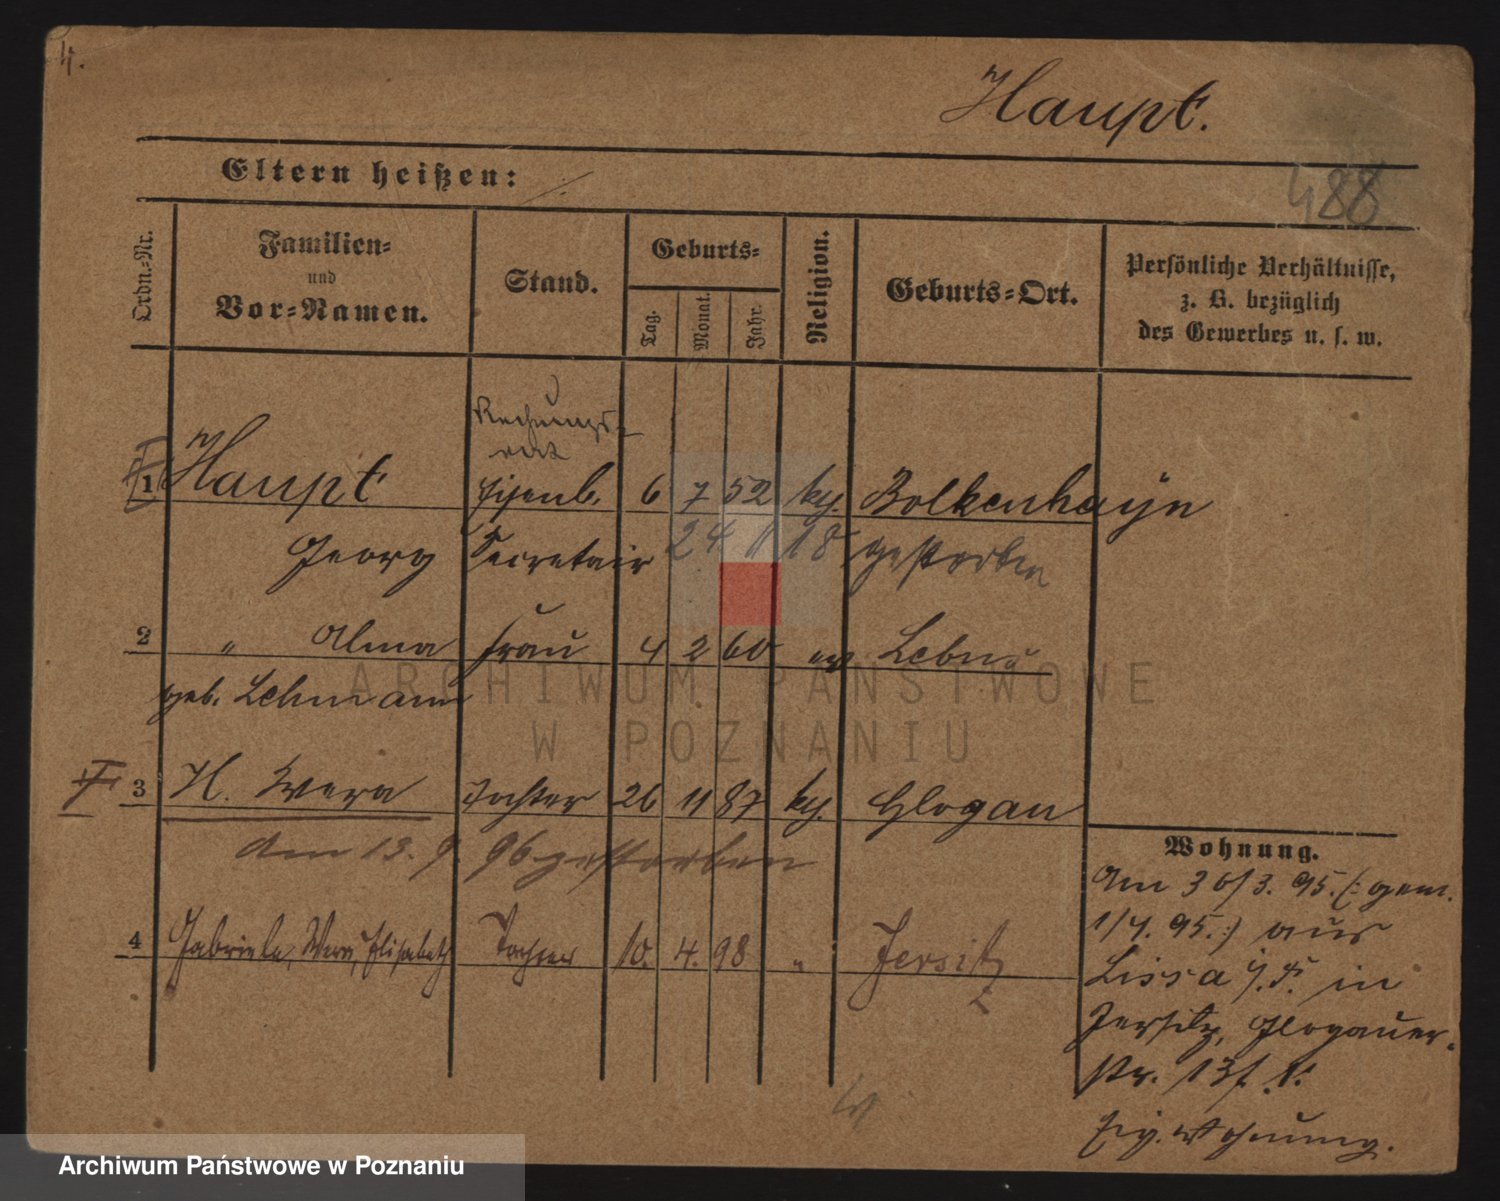 4.
Haupt.
488
Eltern heißen:
Ordn.-Nr.
Familien-
und
Vor-Namen.
Stand.
Geburts-
Tag.
Monat.
Jahr.
Religion.
Geburts-Ort.
Persönliche Verhältnisse,
z. B. bezüglich
des Gewerbes u. s. w.
Rechnungs-
rat
1 Haupt Eisenb. 6 7 52 kg. Bolkenhayn
Georg Secretair 24 11 18 gestorben
2 " Alma Frau 4 2 60 ev
geb. Lehmann
3 H. Wera Tochter 26 11 87 kg. Glogau
am 13. 9. 96 gestorben
4 Gabriele, Wera, Elisabeth Tochter 10. 4. 98 " Jersitz
Wohnung.
Am 30/3. 95. (: gem.
1/4. 95. :) aus
Lissa i. P. in
Jersitz, Glogauer-
str. 137 I.
Eig. Wohnung.
ARCHIWUM PAŃSTWOWE
W POZNANIU
Archiwum Państwowe w Poznaniu